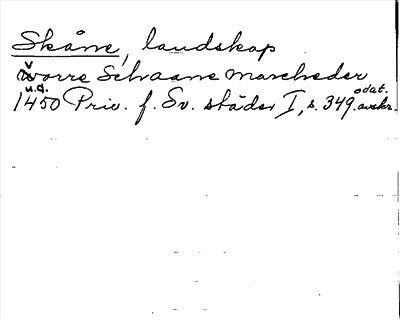 Skåne, landskap
vorre Schaane marcheder
u.d.
1450 Priv. f. Sv. städer I, s. 349. odat. avskr.